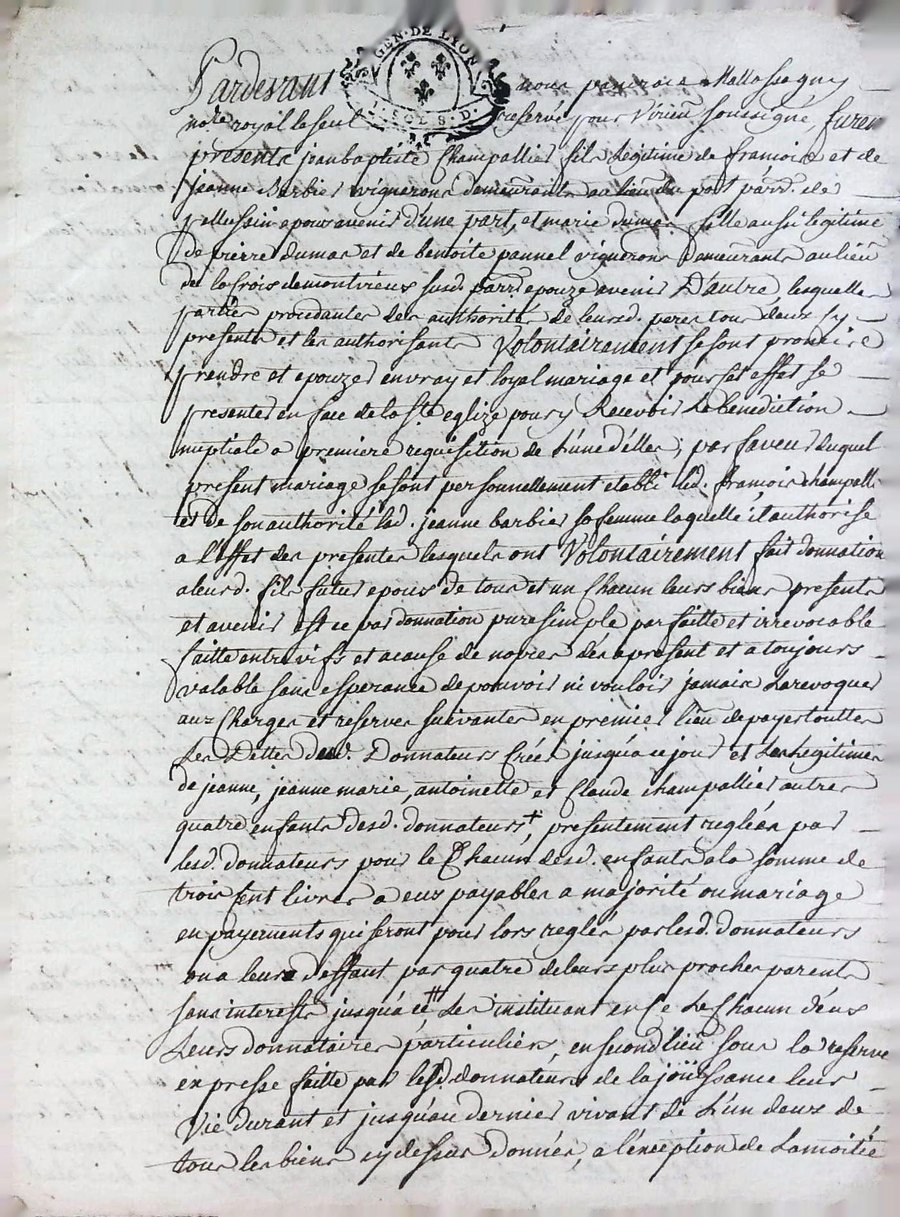 GEN. DE LYON
SOLS. D.
Pardevant nous francois Mallassagny
no.re royal le seul reservé pour Virieu soussigné, furen
presents jean baptiste Champallier fils Legitime de francois et de
jeanne Barbier vignerons demeurants au lieu du port parr. de
pellussin epoux avenir d'une part, et marie dumas fille aussi legitime
de pierre dumas et de benoite pannel vignerons demeurants au lieu
de la Croix de montvieux susd. parr. epouze avenir D'autre, lesquelles
parties procedantes des authorités de leursd. peres tous deux sy
presents et les authorisants Volontairement se sont promis se
prendre et epouzer en vray et loyal mariage et pour set effet se
presenter en face de la ste eglize pour y Recevoir La benediction
nuptiale a premiere requisition de L'une d'elles; par faveur duquel
present mariage se sont personnellement etablis led. francois champall.
et de son authorité lad. jeanne barbier sa femme laquelle il authorise
a l'effet des presentes lesquels ont Volontairement fait donnation
aleurd. fils futur epoux de tous et un Chacun leurs biens presents
et avenir est ce par donnation pure simple parfaitte et irrevocable
faitte entre vifs et a cause de nopces des a present et a toujours
valable sans esperance de pouvoir ni vouloir jamais La revoquer
aux Charges et reserves suivantes en premier lieu de payer touttes
Les Dettes desd. Donnateurs Créés jusqu'a ce jour et Les Legitimes
de jeanne, jeanne marie, antoinette et Claude champallier autres
quatre enfants desd. donnateurs +, presentement reglées par
lesd. donnateurs pour le Chacun desd. enfants a la somme de
trois Cent livres a eux payables a majorité ou mariage
en payements qui seront pour lors reglés par lesd. donnateurs
ou a leurs deffaut par quatre de leurs plus proches parents
sans interests jusqu'a ce ++ Les instituant en Ce Le Chacun d'eux
Leurs donnataires particuliers, en second lieu sous la reserve
expresse faitte par lesd. donnateurs de la joüissance leur
Vie durant et jusqu'au dernier vivant de L'un deux de
tous les biens cy dessus donnés, a l'exception de La moitié